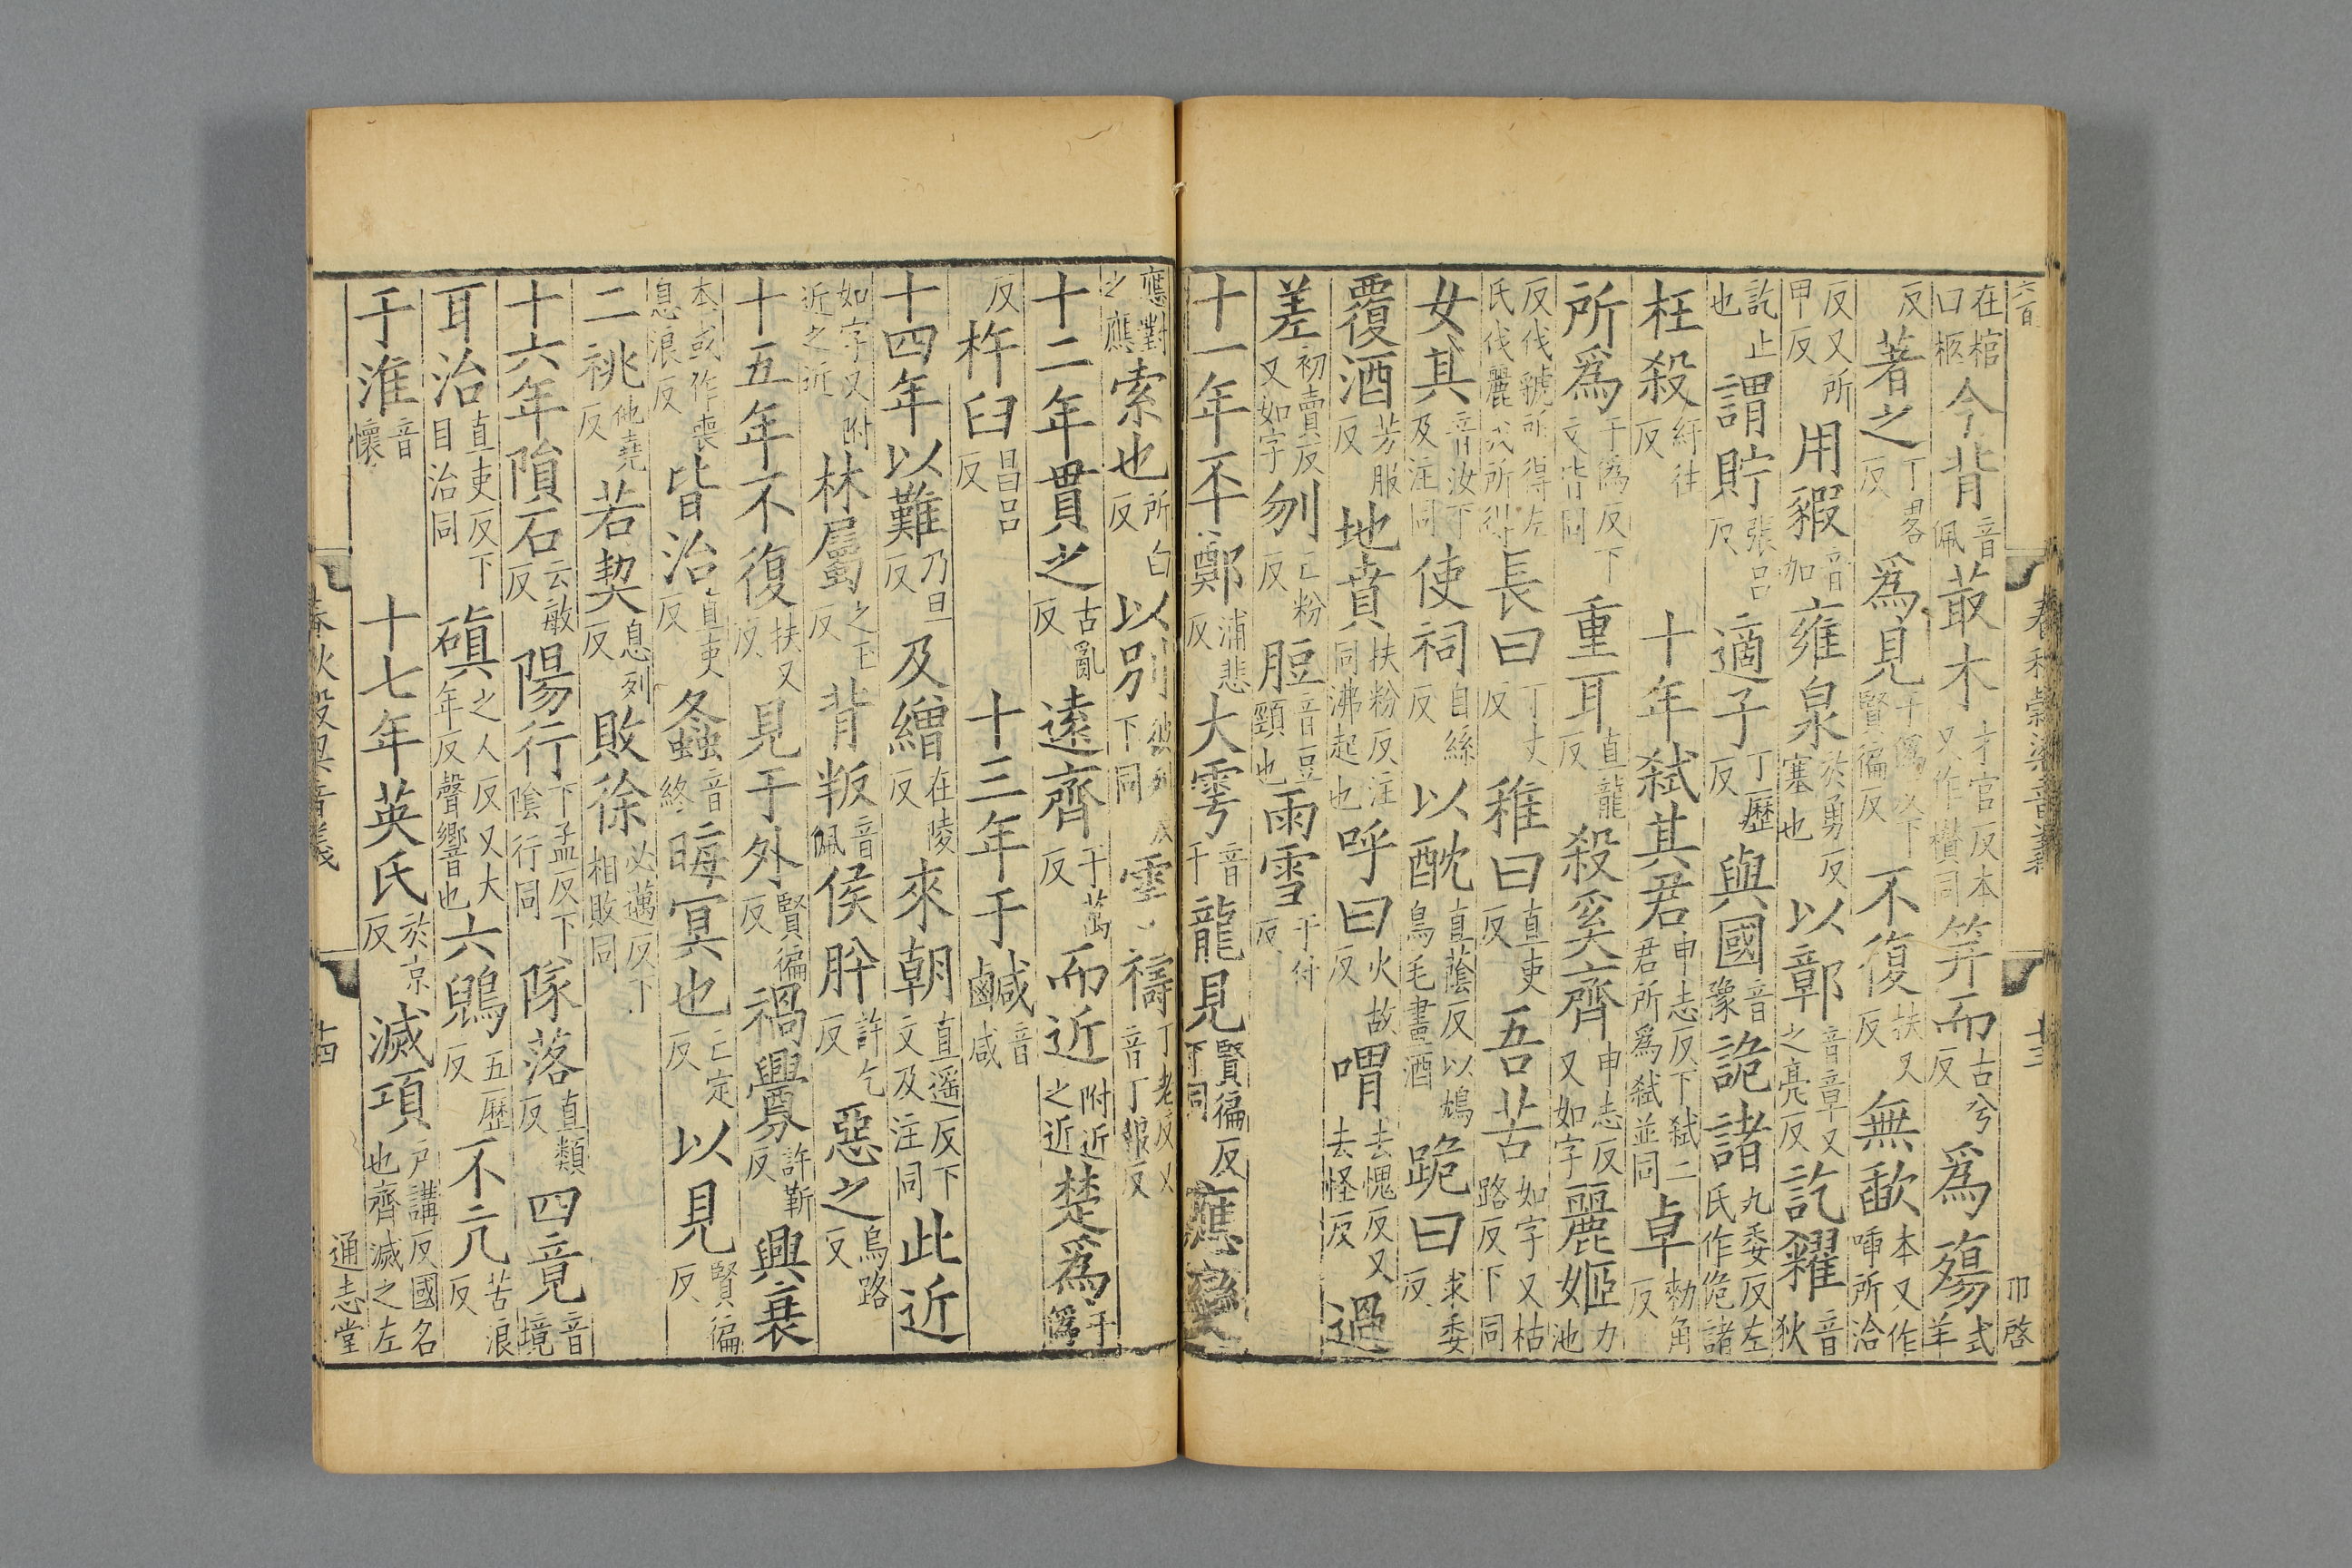 六百
春秋穀梁音義
十三
卩啓
在棺口柩今背音佩菆木才官反本又作欑同笄而古兮反爲殤式羊
反著之丁畧反爲見于僞以下賢徧反不復扶又反無歃本又作唾所洽
反又所甲反用豭音加雍泉於勇反塞也以鄣音章又之亮反訖糴音狄
訖止也謂貯張呂反適子丁歷反與國音豫詭諸九委反左氏作佹諸
枉殺紆往反 十年弑其君申志反下弑二君所爲弑並同卓勑角反
所爲于僞反下文皆同重耳直龍反殺奚齊申志反又如字麗姬力池
反伐虢所得左氏伐麗戎所得長曰丁丈反稚曰直吏反吾苦如字又枯路反下同
女其音汝下及注同使祠自絲反以酖直蔭反以鴆鳥毛畫酒跪曰求委反
覆酒芳服反地賁扶粉反注同沸起也呼曰火故反喟去愧反又去怪反過
差初賣反又如字刎亡粉反脰音豆頸也雨雪于付反
十一年㔻鄭浦悲反大雩音于龍見賢徧反下同應變
應對之應索也所白反以別彼列反下同雩禱丁老反又音丁報反
十二年貫之古亂反遠齊于萬反而近附近之近楚爲于僞
反杵臼昌呂反 十三年于鹹音咸
十四年以難乃旦反及繒在陵反來朝直遥反下文及注同此近
如字又附近之近林屬之玉反背叛音佩侯肸許乞反惡之烏路反
十五年不復扶又反見于外賢徧反禍釁許靳反興衰
本或作喪息浪反皆治直吏反螽音終晦冥也亡定反以見賢徧反
二祧他堯反若契息列反敗徐必邁反下相敗同
十六年隕石云敏反陽行下孟反下陰行同隊落直類反四竟音境
耳治直吏反下目治同磌之人反又大年反聲響也六鶂五歷反不亢苦浪反
于淮音懷 十七年英氏於京反滅項戸講反國名也齊滅之左
春秋穀梁音義
十四
通志堂